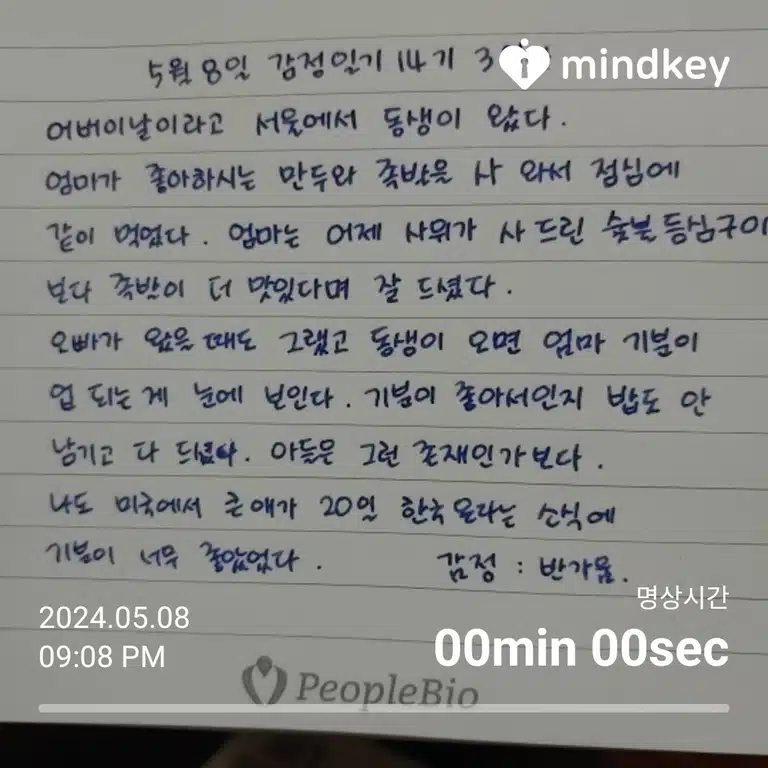 5월 8일 감정일기 14기 3
mindkey
어버이날이라고 서울에서 동생이 왔다.
엄마가 좋아하시는 만두와 족발을 사 와서 점심에
같이 먹었다. 엄마는 어제 사위가 사 드린 숯불등심구이
보다 족발이 더 맛있다며 잘 드셨다.
오빠가 왔을 때도 그랬고 동생이 오면 엄마 기분이
업 되는 게 눈에 보인다. 기분이 좋아서인지 밥도 안
남기고 다 드셨다. 아들은 그런 존재인가보다.
나도 미국에서 큰애가 20일 한국 온다는 소식에
기분이 너무 좋았었다. 감정 : 반가움.
명상시간
2024.05.08
09:08 PM
00min 00sec
PeopleBio